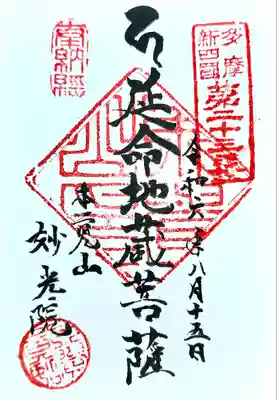 多摩
新四國
第二十三番
奉納経
延命地蔵菩薩
令和六年八月十五日
本覚山
妙光院